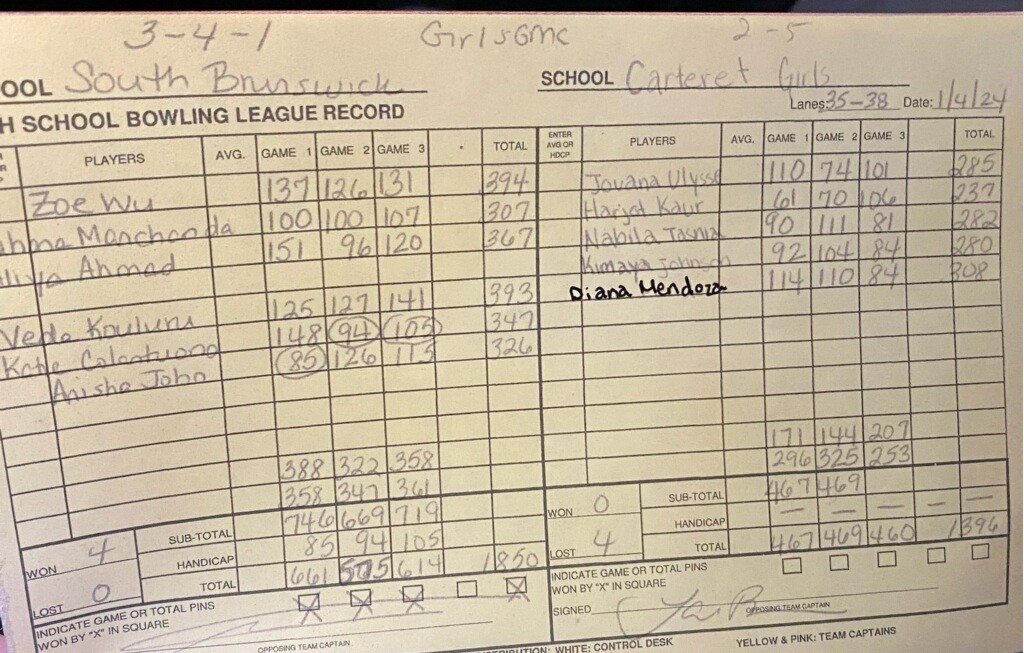 3-4-1 GirlsGMC 2-5
OOL South Brunswick
SCHOOL Carteret Girls
H SCHOOL BOWLING LEAGUE RECORD
Lanes: 35-38 Date: 1/4/24
PLAYERS AVG. GAME 1 GAME 2 GAME 3 TOTAL
Zoe Wu 137 126 131 394
ahma Manchanda 100 100 107 307
liya Ahmad 151 96 120 367
Veda Kouluru 125 127 141 393
Katie Colantuono 148 94 105 347
Anisha John 85 126 115 326
388 322 358
358 347 361
SUB-TOTAL 746 669 719
HANDICAP 85 94 105
TOTAL 661 575 614 1850
WON 4
LOST 0
INDICATE GAME OR TOTAL PINS
WON BY "X" IN SQUARE
OPPOSING TEAM CAPTAIN
ENTER AVG OR HDCP PLAYERS AVG. GAME 1 GAME 2 GAME 3 TOTAL
Jovana Ulysse 110 74 101 285
Harjot Kaur 61 70 106 237
Nabila Tasnia 90 111 81 282
Kimaya Johnson 92 104 84 280
Diana Mendoza 114 110 84 308
171 144 207
296 325 253
SUB-TOTAL 467 469
HANDICAP — — — — —
TOTAL 467 469 460 1396
WON 0
LOST 4
INDICATE GAME OR TOTAL PINS
WON BY "X" IN SQUARE
SIGNED
OPPOSING TEAM CAPTAIN
WHITE: CONTROL DESK YELLOW & PINK: TEAM CAPTAINS